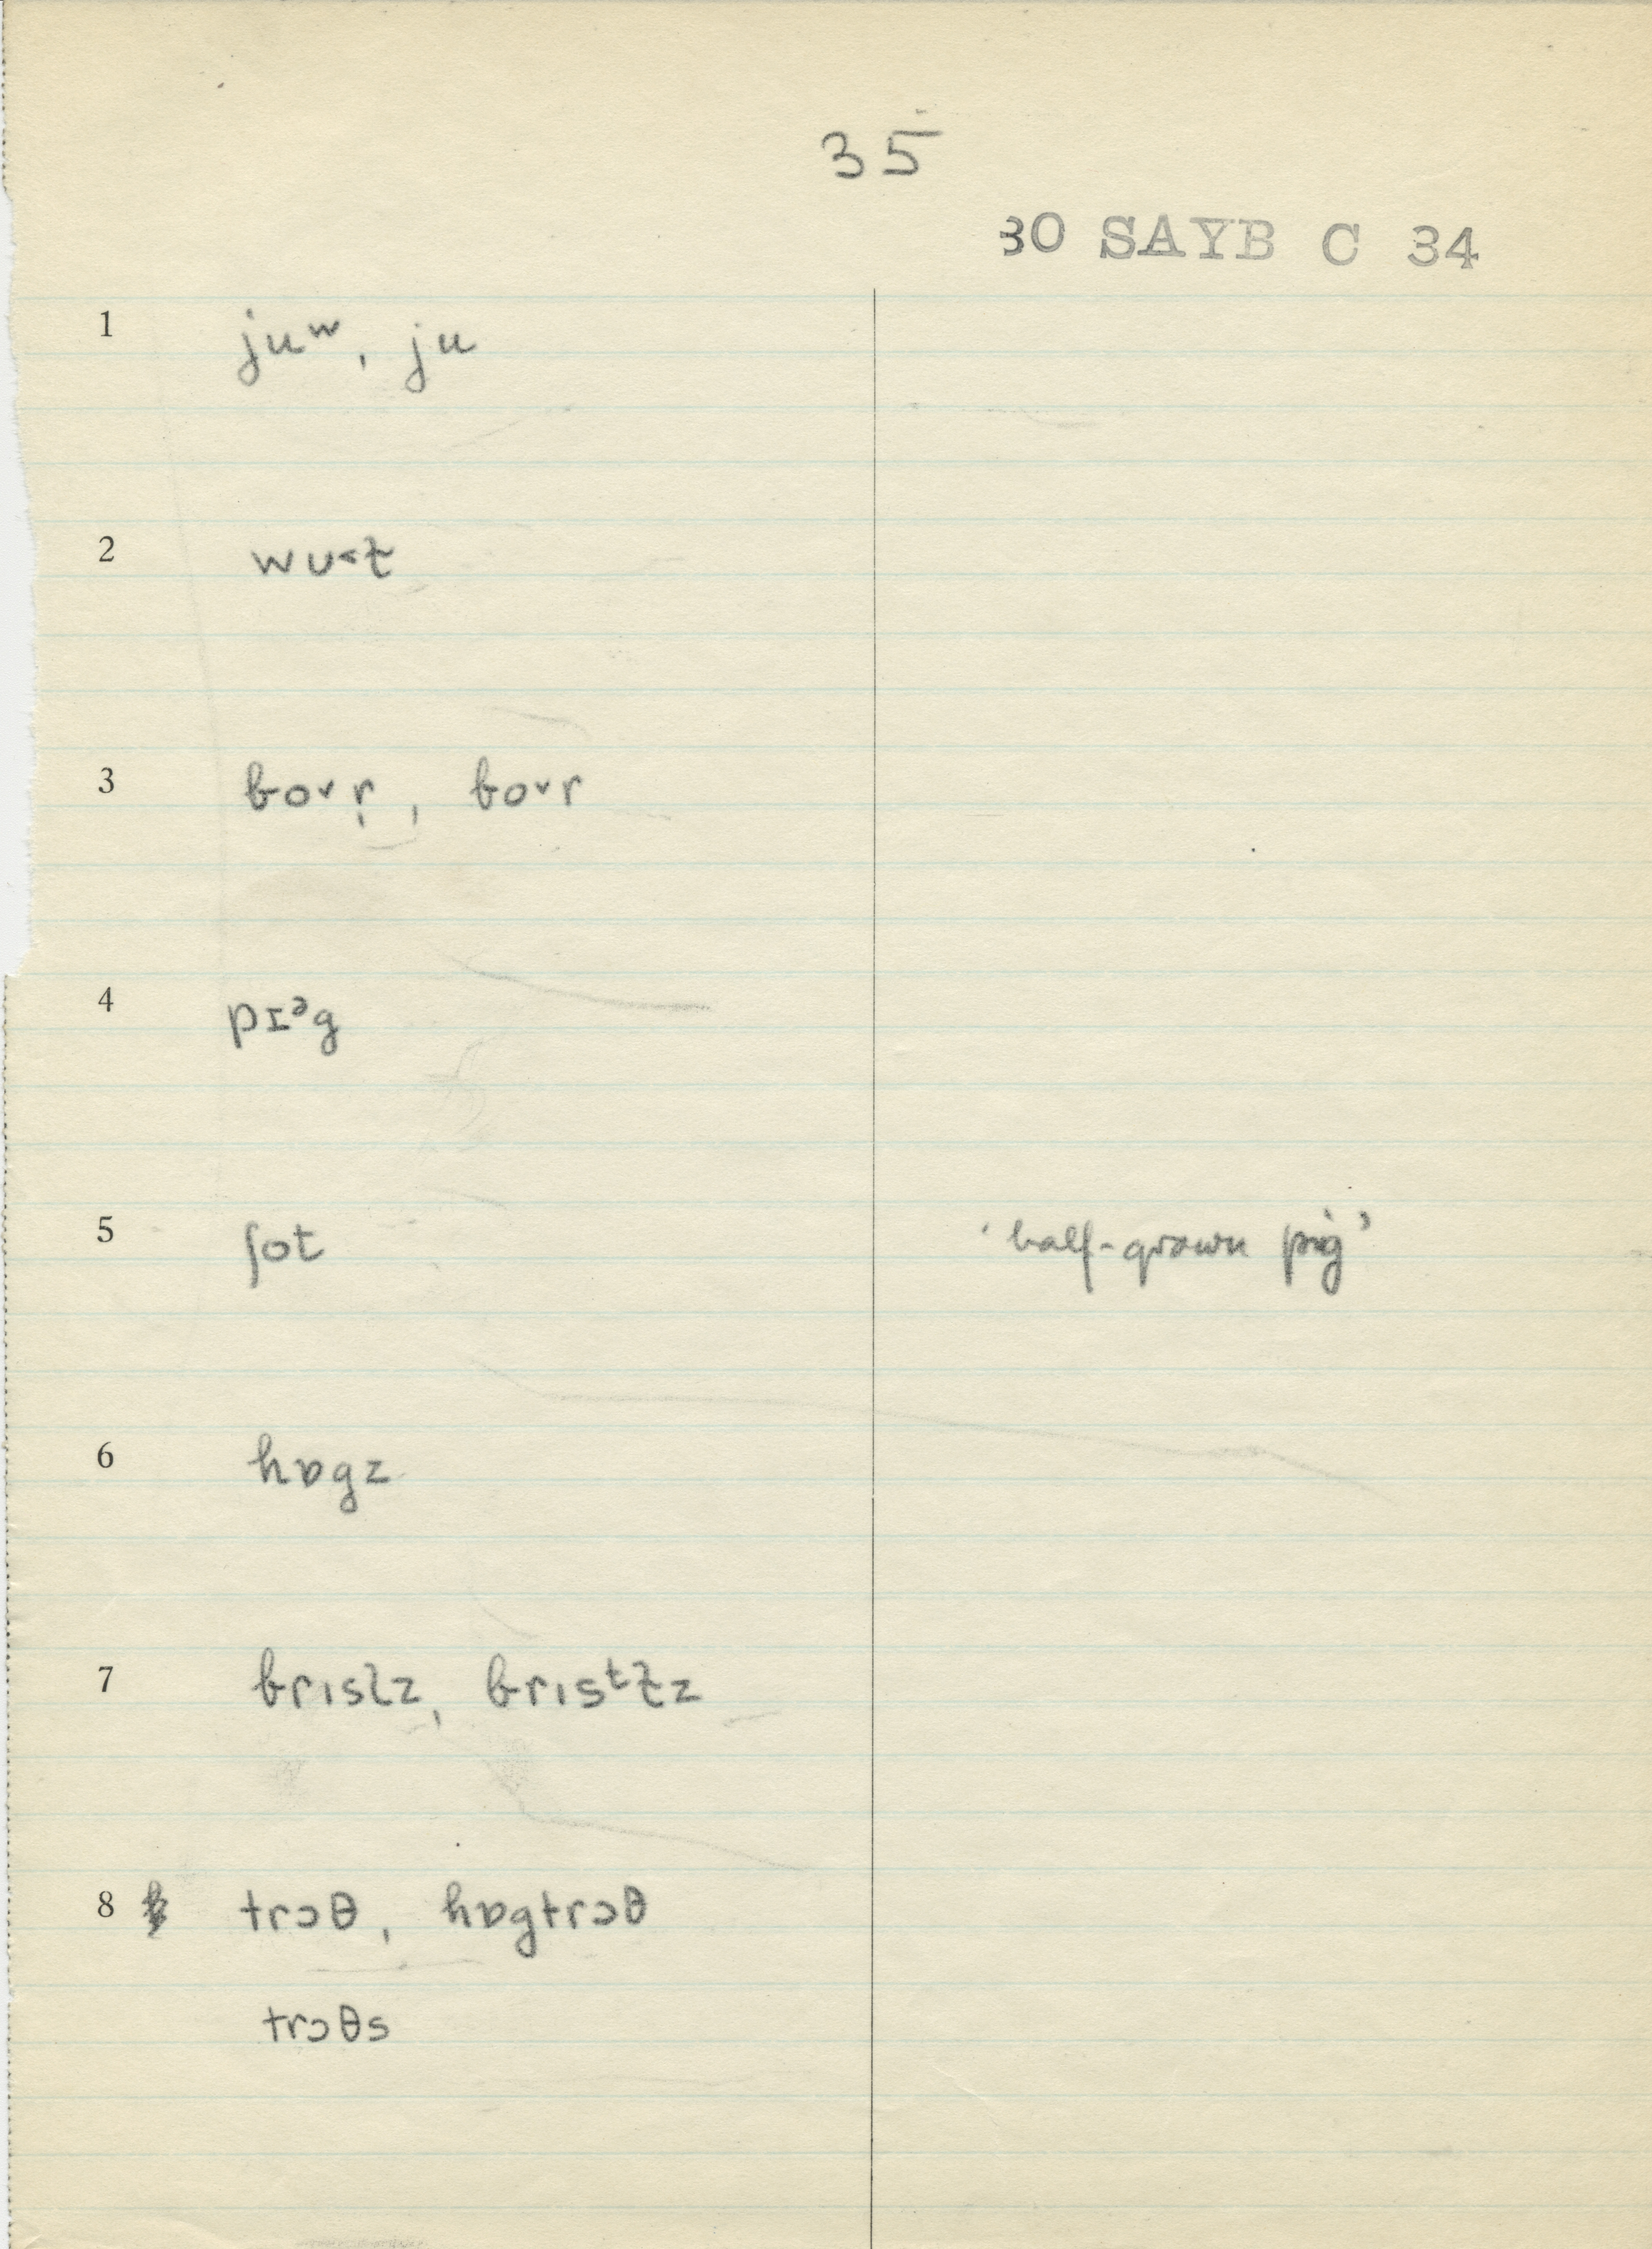 35
30 SAYB C 34
1 juʷ, ju
2 wu˂ɫ
3 bo˅r̩, bo˅r
4 pɪᵊg
5 ʃot 'half-grown pig'
6 hɒgz
7 brısl̩z, brısᵗɫz
8 trɔθ, hɒgtrɔθ
trɔθs